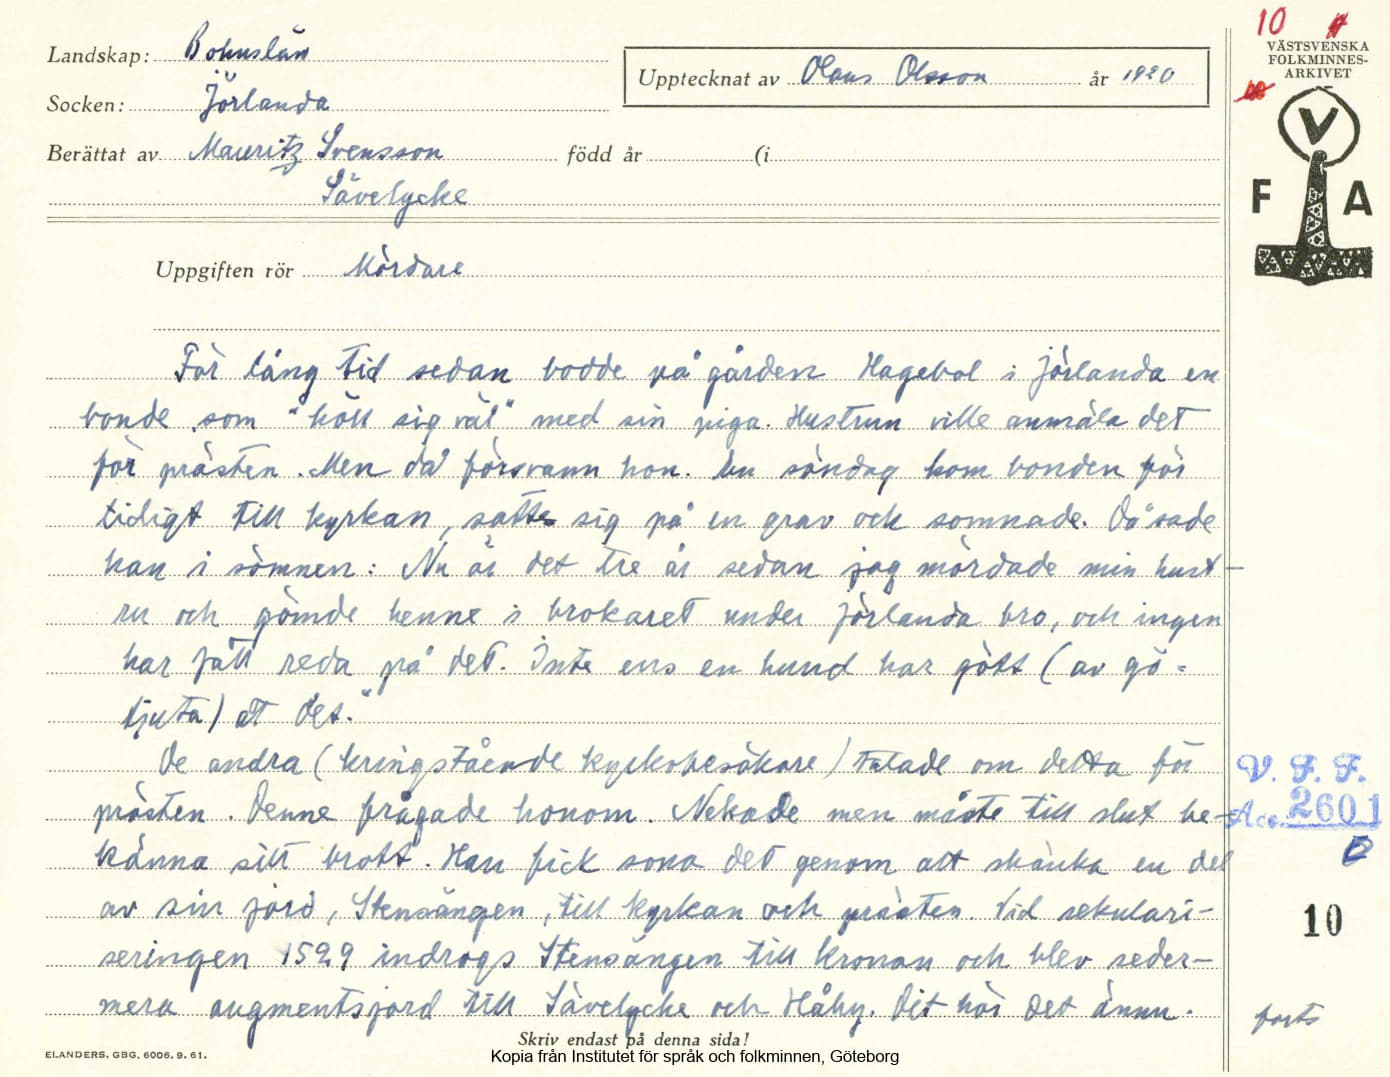 10
VÄSTSVENSKA
FOLKMINNES-
ARKIVET
V
F A
Landskap: Bohuslän
Socken: Jörlanda
Upptecknat av Olaus Olsson år 1920
Berättat av Mauritz Svensson född år (i
Sävelycke
Uppgiften rör Mördare
För lång tid sedan bodde på gården Hagebol i Jörlanda en
bonde som "höll sig väl" med sin piga. Hustrun ville anmäla det
för prästen. Men då försvann hon. En söndag kom bonden för
tidigt till kyrkan, satte sig på en grav och somnade. Då sade
han i sömnen: Nu är det tre år sedan jag mördade min hust-
ru och gömde henne i brokaret under Jörlanda bro, och ingen
har fått reda på det. Inte ens en hund har gött (av gö=
tjuta) åt det."
De andra (kringstående kyrkobesökare) talade om detta för
prästen. Denne frågade honom. Nekade men måste till slut be-
känna sitt brott. Han fick sona det genom att skänka en del
av sin jord, Stensängen, till kyrkan och prästen. Vid sekulari-
seringen 1529 indrogs Stensängen till kronan och blev seder-
mera augmentsjord till Sävelycke och Håby. Dit hör det ännu.
V. F. F.
Acc. 2601
10
forts
Skriv endast på denna sida!
ELANDERS, GBG. 6006. 9. 61.
Kopia från Institutet för språk och folkminnen, Göteborg